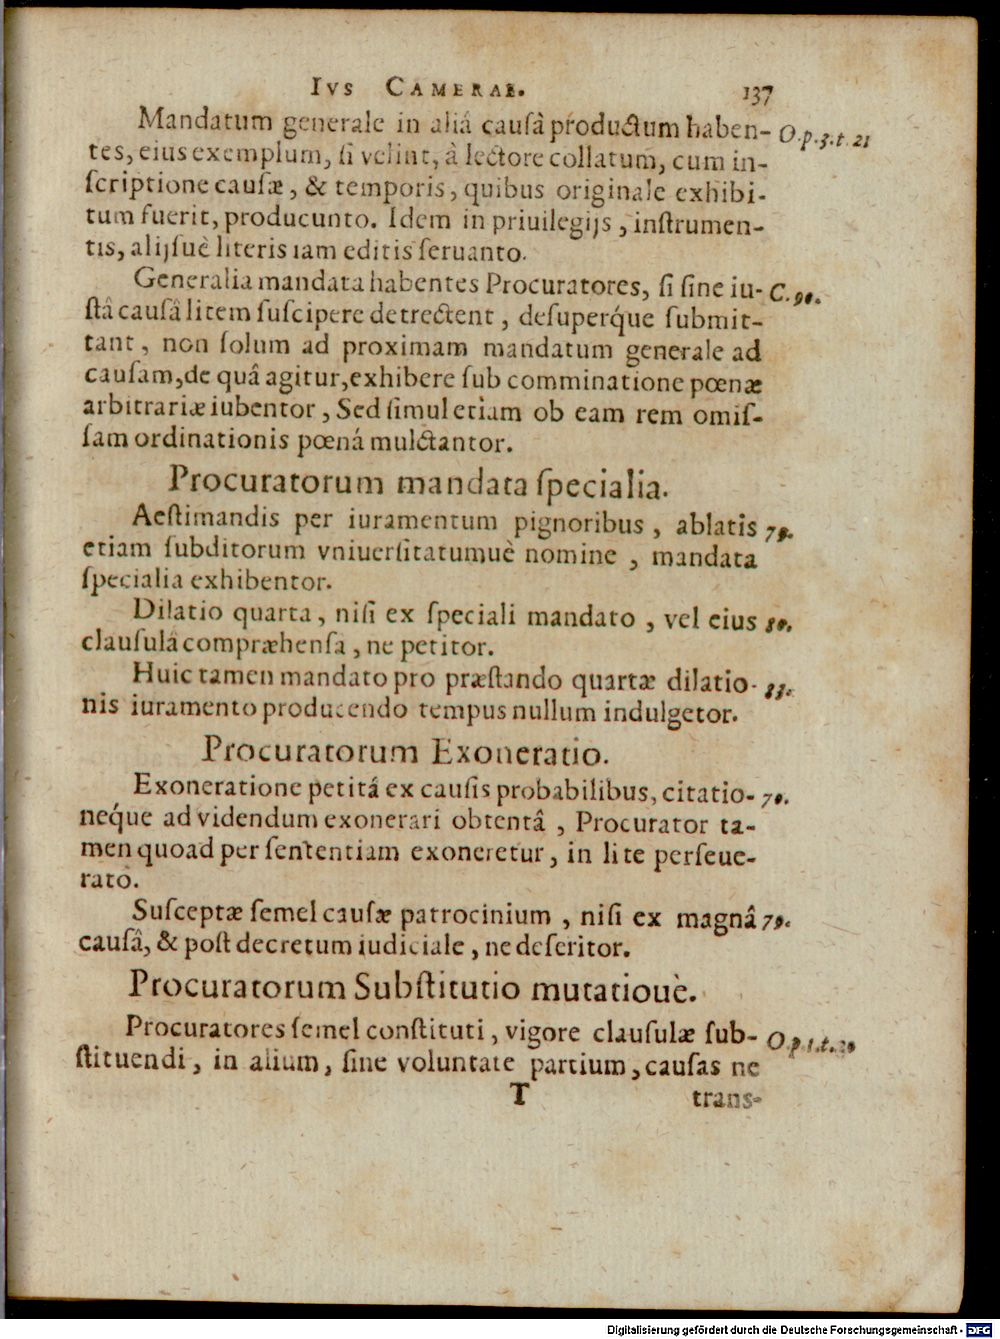 IVS CAMERAE. 137
Mandatum generale in aliâ causâ productum haben- O.p.3.t.21
tes, eius exemplum, si velint, â lectore collatum, cum in-
scriptione causæ, & temporis, quibus originale exhibi-
tum fuerit, producunto. Idem in priuilegijs, instrumen-
tis, alijsuè literis iam editis seruanto.
Generalia mandata habentes Procuratores, si sine iu- C.90.
stâ causâ litem suscipere detrectent, desuperq́ue submit-
tant, non solum ad proximam mandatum generale ad
causam, de quâ agitur, exhibere sub comminatione pœnæ
arbitrariæ iubentor, Sed simul etiam ob eam rem omis-
sam ordinationis pœnâ mulctantor.
Procuratorum mandata specialia.
Aestimandis per iuramentum pignoribus, ablatis
etiam subditorum vniuersitatumuè nomine, mandata
specialia exhibentor.
Dilatio quarta, nisi ex speciali mandato, vel eius 80.
clausulâ compræhensa, ne petitor.
Huic tamen mandato pro præstando quartæ dilatio-
nis iuramento producendo tempus nullum indulgetor.
Procuratorum Exoneratio.
Exoneratione petitâ ex causis probabilibus, citatio- 70.
neq́ue ad videndum exonerari obtentâ, Procurator ta-
men quoad per sententiam exoneretur, in lite perseue-
rato.
Susceptæ semel causæ patrocinium, nisi ex magnâ 79.
causâ, & post decretum iudiciale, ne deseritor.
Procuratorum Substitutio mutatiouè.
Procuratores semel constituti, vigore clausulæ sub- O.p.1.t.20
stituendi, in alium, sine voluntate partium, causas ne
T trans-
Digitalisierung gefördert durch die Deutsche Forschungsgemeinschaft - DFG